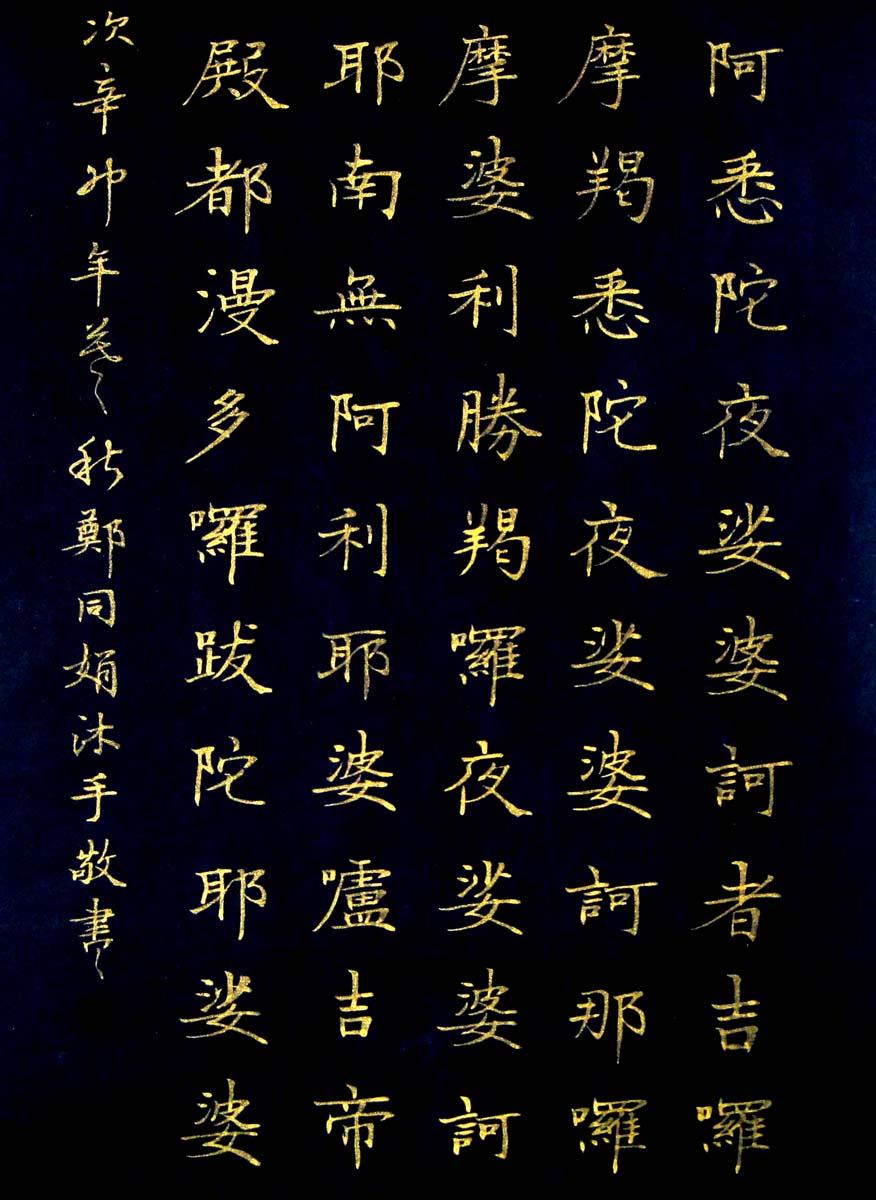 阿悉陀夜娑婆訶者吉囉
摩羯悉陀夜娑婆訶那囉
摩婆利勝羯囉夜娑婆訶
耶南無阿利耶婆嚧吉帝
殿都漫多囉跋陀耶娑婆
次辛卯年秋鄭同娟沐手敬書